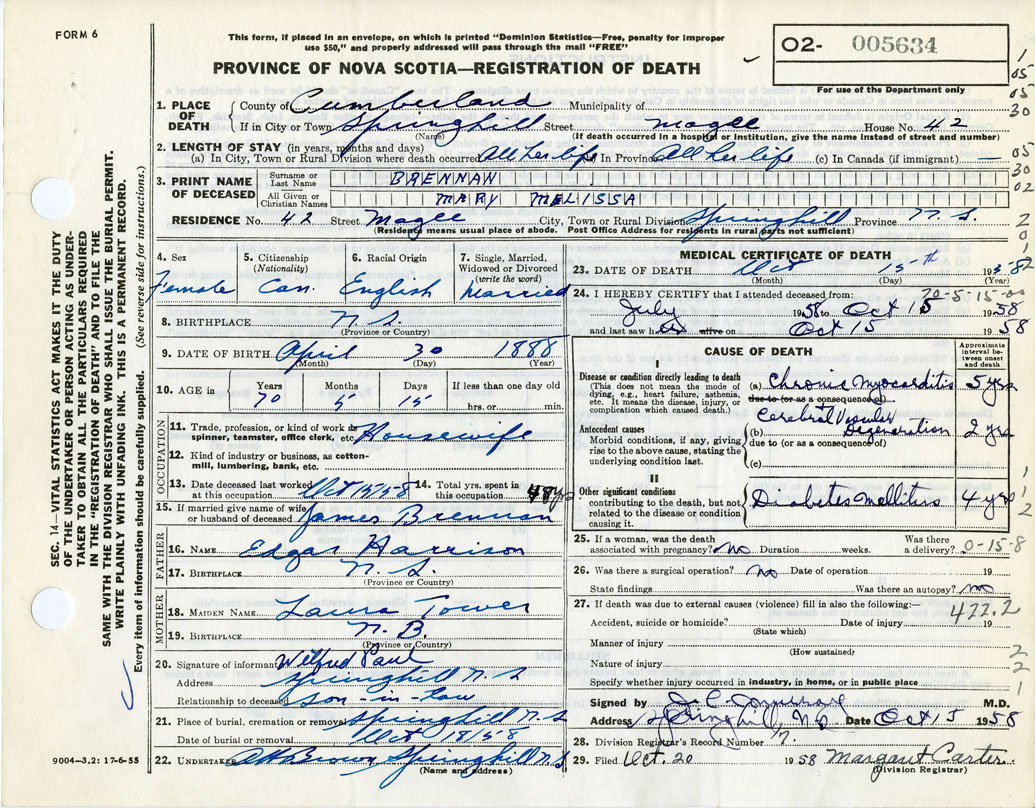 FORM 6
This form, if placed in an envelope, on which is printed "Dominion Statistics—Free, penalty for improper
use $50," and properly addressed will pass through the mail "FREE"
PROVINCE OF NOVA SCOTIA—REGISTRATION OF DEATH
O2- 005634
For use of the Department only
1
05
05
30
05
30
02
2
0
SEC. 14—VITAL STATISTICS ACT MAKES IT THE DUTY
OF THE UNDERTAKER OR PERSON ACTING AS UNDER-
TAKER TO OBTAIN ALL THE PARTICULARS REQUIRED
IN THE "REGISTRATION OF DEATH" AND TO FILE THE
SAME WITH THE DIVISION REGISTRAR WHO SHALL ISSUE THE BURIAL PERMIT.
WRITE PLAINLY WITH UNFADING INK. THIS IS A PERMANENT RECORD.
Every item of information should be carefully supplied. (See reverse side for instructions.)
1. PLACE OF DEATH
County of Cumberland Municipality of
If in City or Town Springhill Street Magee House No. 42
(Name) (If death occurred in a hospital or institution, give the name instead of street and number)
2. LENGTH OF STAY (in years, months and days)
(a) In City, Town or Rural Division where death occurred All her life In Province All her life (c) In Canada (if immigrant) —
3. PRINT NAME OF DECEASED
Surname or Last Name BRENNAN
All Given or Christian Names MARY MELISSA
RESIDENCE No. 42 Street Magee City, Town or Rural Division Springhill Province N.S.
(Residence means usual place of abode. Post Office Address for residents in rural parts not sufficient)
4. Sex
Female
5. Citizenship
(Nationality)
Can.
6. Racial Origin
English
7. Single, Married,
Widowed or Divorced
(write the word)
Married
8. BIRTHPLACE N.S.
(Province or Country)
9. DATE OF BIRTH April 30 1888
(Month) (Day) (Year)
10. AGE in Years Months Days If less than one day old
70 5 15 hrs. or min.
OCCUPATION
11. Trade, profession, or kind of work as
spinner, teamster, office clerk, etc. Housewife
12. Kind of industry or business, as cotton-
mill, lumbering, bank, etc.
13. Date deceased last worked
at this occupation Oct 15/58
14. Total yrs. spent in
this occupation 48 yrs
15. If married give name of wife
or husband of deceased James Brennan
FATHER
16. NAME Edgar Harrison
17. BIRTHPLACE N.S.
(Province or Country)
MOTHER
18. MAIDEN NAME Laura Tower
19. BIRTHPLACE N.B.
(Province or Country)
20. Signature of informant Wilfred Paul
Address Springhill N.S
Relationship to deceased son-in-law
21. Place of burial, cremation or removal Springhill N.S
Date of burial or removal Oct 18/58
22. UNDERTAKER Brown Springhill N.S
(Name and address)
9004—3.2: 17-6-55
MEDICAL CERTIFICATE OF DEATH
23. DATE OF DEATH Oct 15th 1958
(Month) (Day) (Year)
24. I HEREBY CERTIFY that I attended deceased from: 70-5-15-00
July 1958 to Oct 15 1958
and last saw her alive on Oct 15 1958
CAUSE OF DEATH
Approximate interval between onset and death
I
Disease or condition directly leading to death
(This does not mean the mode of
dying, e.g., heart failure, asthenia,
etc. It means the disease, injury, or
complication which caused death.)
(a) Chronic Myocarditis 5 yrs
due to (or as a consequence of)
Antecedent causes
Morbid conditions, if any, giving
rise to the above cause, stating the
underlying condition last.
Cerebral Vascular
(b) Degeneration 2 yrs
due to (or as a consequence of)
(c)
II
Other significant conditions
contributing to the death, but not
related to the disease or condition
causing it.
Diabetes Mellitus 4 yrs
1
1
2
25. If a woman, was the death
associated with pregnancy? No Duration weeks. Was there
a delivery? 0-15-8
26. Was there a surgical operation? No Date of operation 19
State findings Was there an autopsy? No
27. If death was due to external causes (violence) fill in also the following:—
422.2
Accident, suicide or homicide? Date of injury 19
(State which)
Manner of injury
(How sustained)
Nature of injury
Specify whether injury occurred in industry, in home, or in public place
2
2
1
Signed by M.D.
Address Springhill, N.S. Date Oct 15 1958
28. Division Registrar's Record Number 7.
29. Filed Oct. 20 1958 Margaret Carter
(Division Registrar)